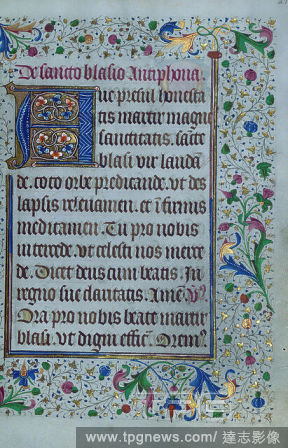 De sancto blasio Antiphona.
Aue presul honesta
tis martir magne
sanctitatis. sancte
blasi vir lauda
de. toto orbe predicande. vt des
lapsis releuamen. et infirmis
medicamen. Tu pro nobis
intercede. vt celesti nos merce
de. Ditet deus cum beatis. In
regno sue claritatis. Amen. V.
Ora pro nobis beate martir
blasi. vt digni effic. Orem.
www.tpgnews.com/ 達志影像